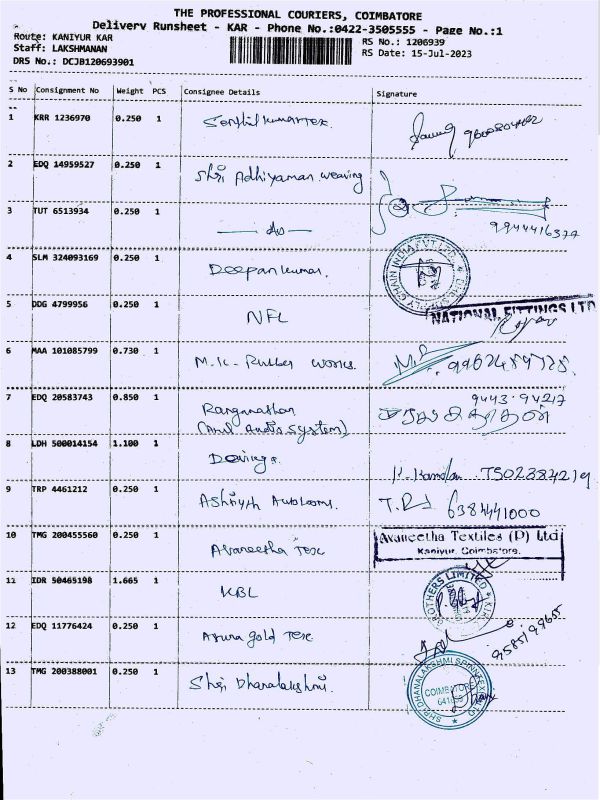 THE PROFESSIONAL COURIERS, COIMBATORE
Delivery Runsheet - KAR - Phone No.:0422-3505555 - Page No.:1
Route: KANIYUR KAR
RS No.: 1206939
Staff: LAKSHMANAN
RS Date: 15-Jul-2023
DRS No.: DCJB120693901
S No Consignment No Weight PCS Consignee Details Signature
1 KRR 1236970 0.250 1 Senthil Kumar Tex.
2 EDQ 14959527 0.250 1 Shri Adhiyaman weaving
3 TUT 6513934 0.250 1 — do — 9944416377
4 SLM 324093169 0.250 1 Deepan Kumar.
5 DDG 4799956 0.250 1 NFL NATIONAL FITTINGS LTD
6 MAA 101085799 0.730 1 M.K - Rubber works.
7 EDQ 20583743 0.850 1 Ranganathan 9443-94217
8 LDH 500014154 1.100 1
9 TRP 4461212 0.250 1 6384441000
10 TMG 200455560 0.250 1 Avaneetha Tex Avaneetha Textiles (P) Ltd
Kaniyur, Coimbatore.
11 IDR 50465198 1.665 1 KBL
12 EDQ 11776424 0.250 1 gold Tex
13 TMG 200388001 0.250 1 Shri Dhanalakshmi. COIMBATORE